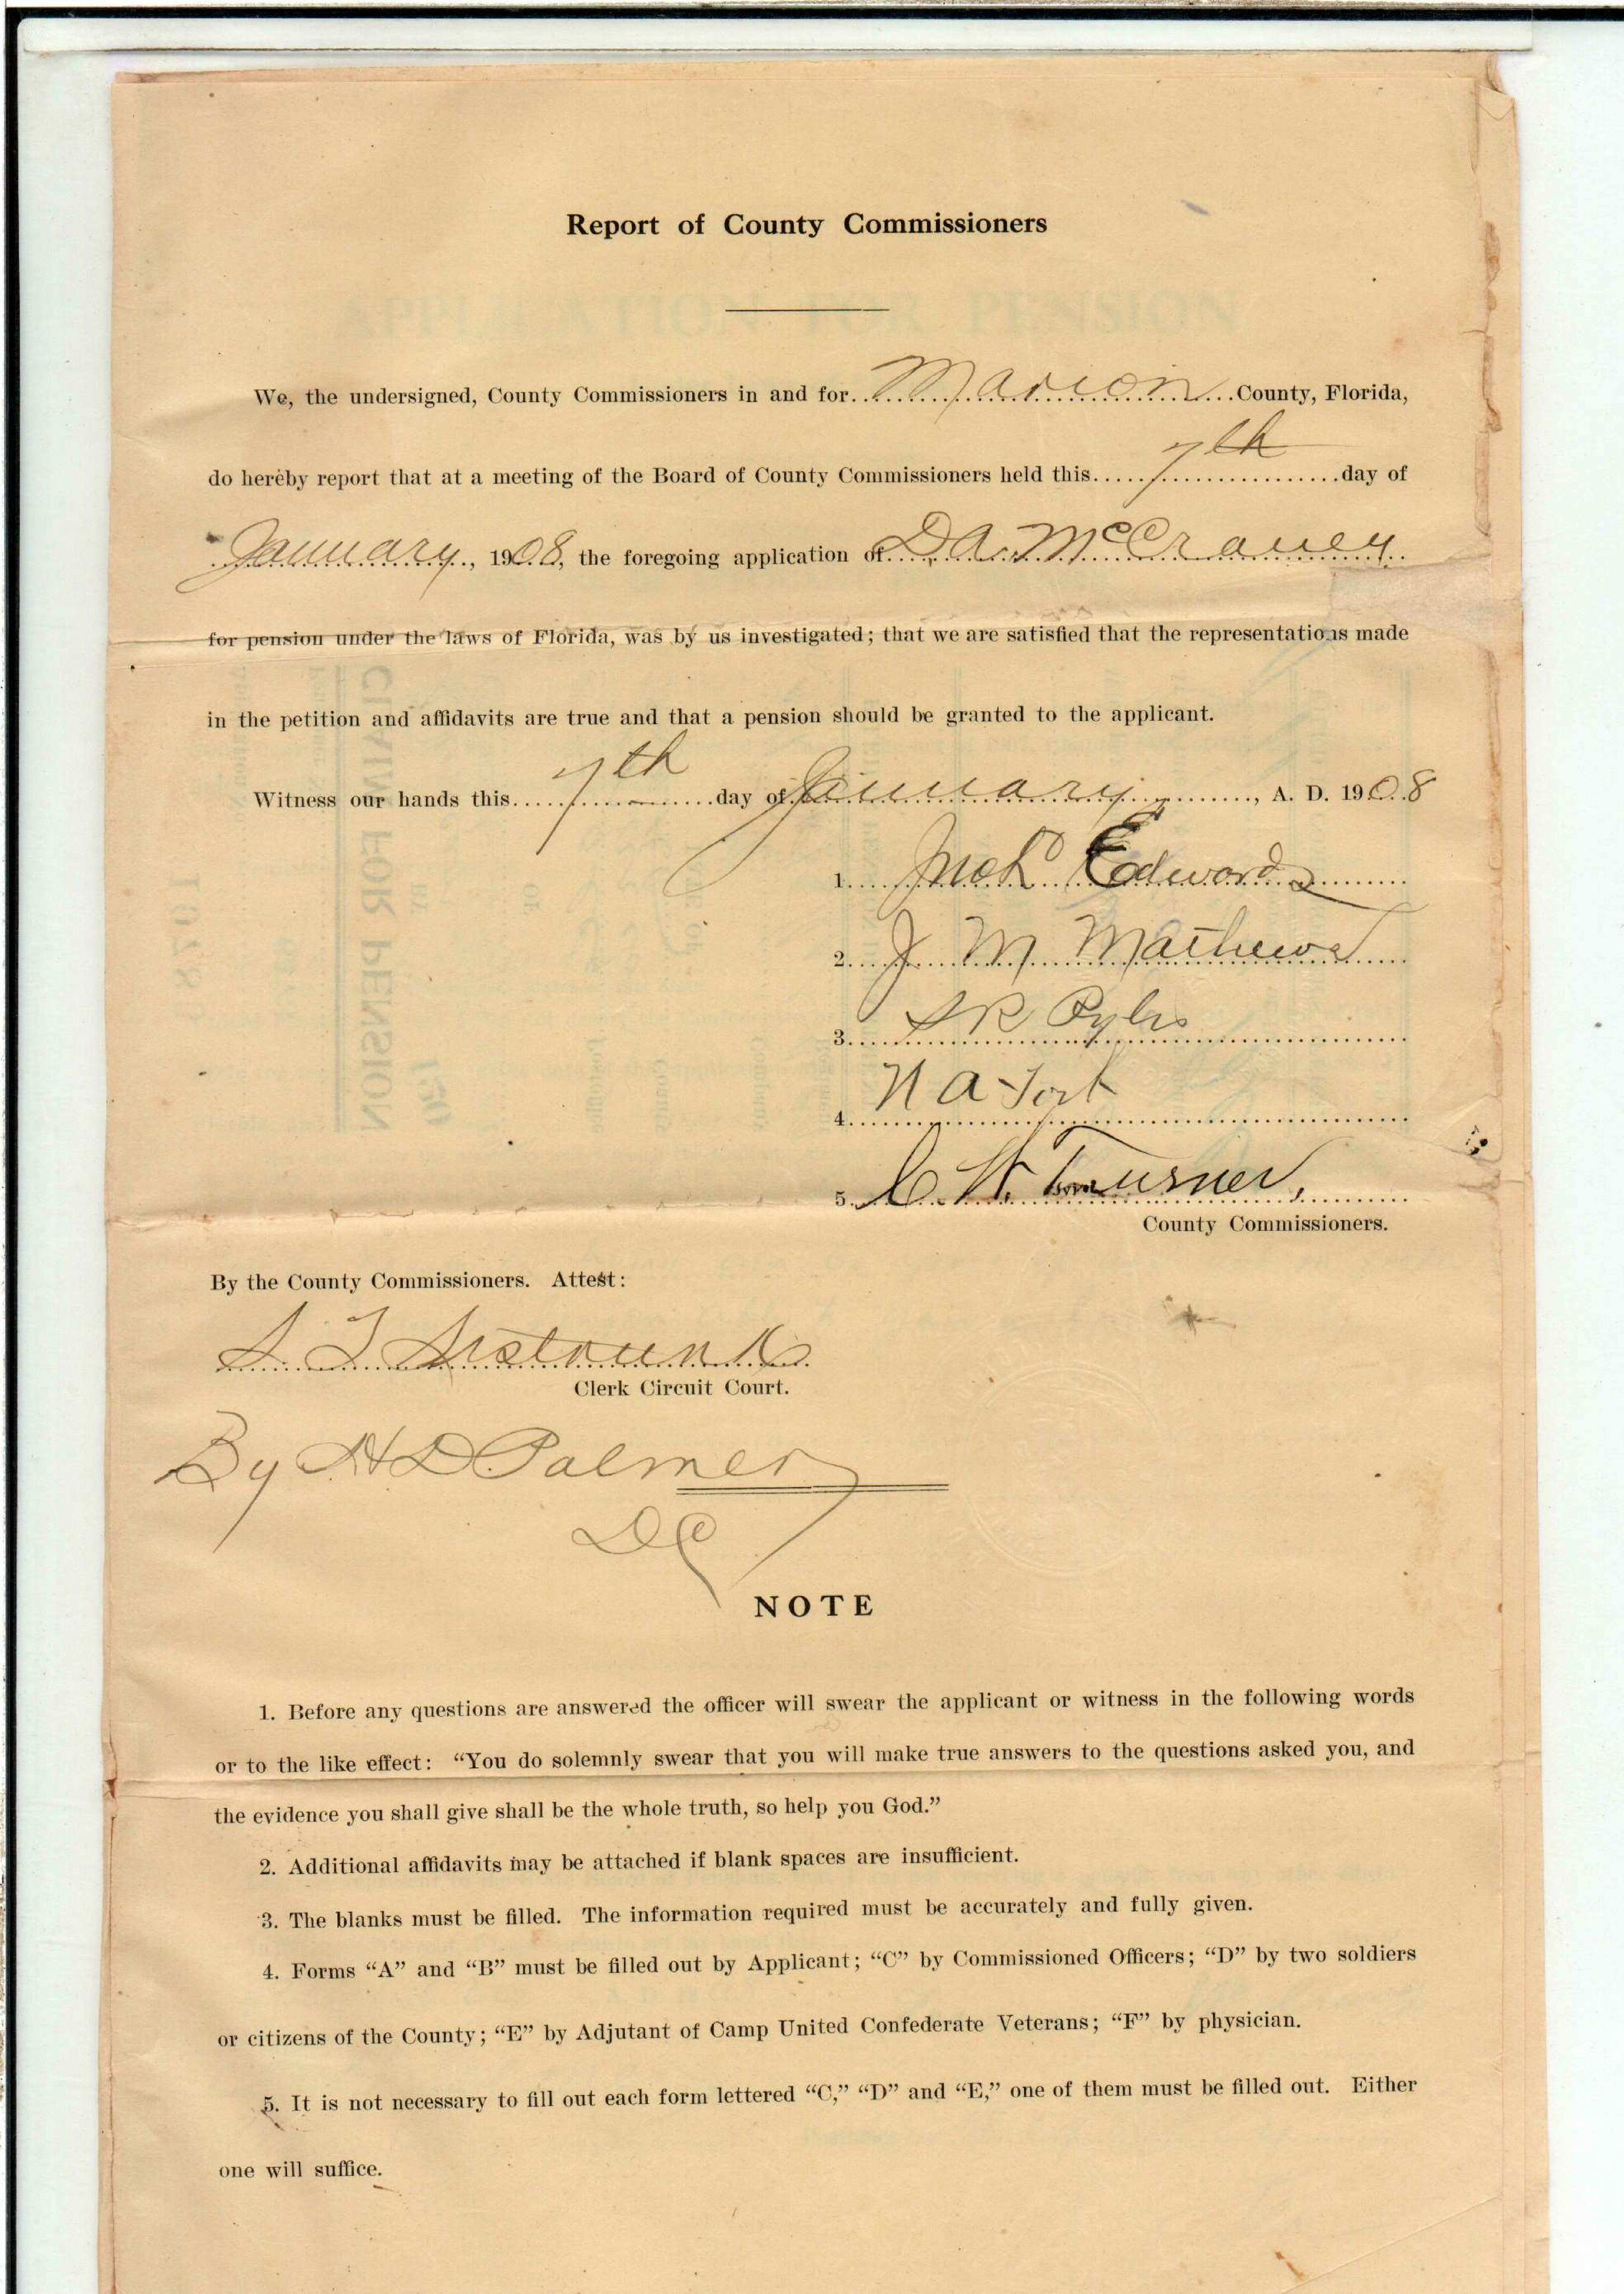 Report of County Commissioners
We, the undersigned, County Commissioners in and for Marion County, Florida,
do hereby report that at a meeting of the Board of County Commissioners held this 7th day of
January, 1908, the foregoing application of D. A. McCraney
for pension under the laws of Florida, was by us investigated; that we are satisfied that the representations made
in the petition and affidavits are true and that a pension should be granted to the applicant.
Witness our hands this 7th day of January, A. D. 1908
1. Edwards
2. J. M. Mathews
3. S R Pyles
4. N A Fort
5. C. W. Turner,
County Commissioners.
By the County Commissioners. Attest:
S. T. Sistrunk
Clerk Circuit Court.
By H D Palmer
DC
NOTE
1. Before any questions are answered the officer will swear the applicant or witness in the following words
or to the like effect: “You do solemnly swear that you will make true answers to the questions asked you, and
the evidence you shall give shall be the whole truth, so help you God.”
2. Additional affidavits may be attached if blank spaces are insufficient.
3. The blanks must be filled. The information required must be accurately and fully given.
4. Forms “A” and “B” must be filled out by Applicant; “C” by Commissioned Officers; “D” by two soldiers
or citizens of the County; “E” by Adjutant of Camp United Confederate Veterans; “F” by physician.
5. It is not necessary to fill out each form lettered “C,” “D” and “E,” one of them must be filled out. Either
one will suffice.